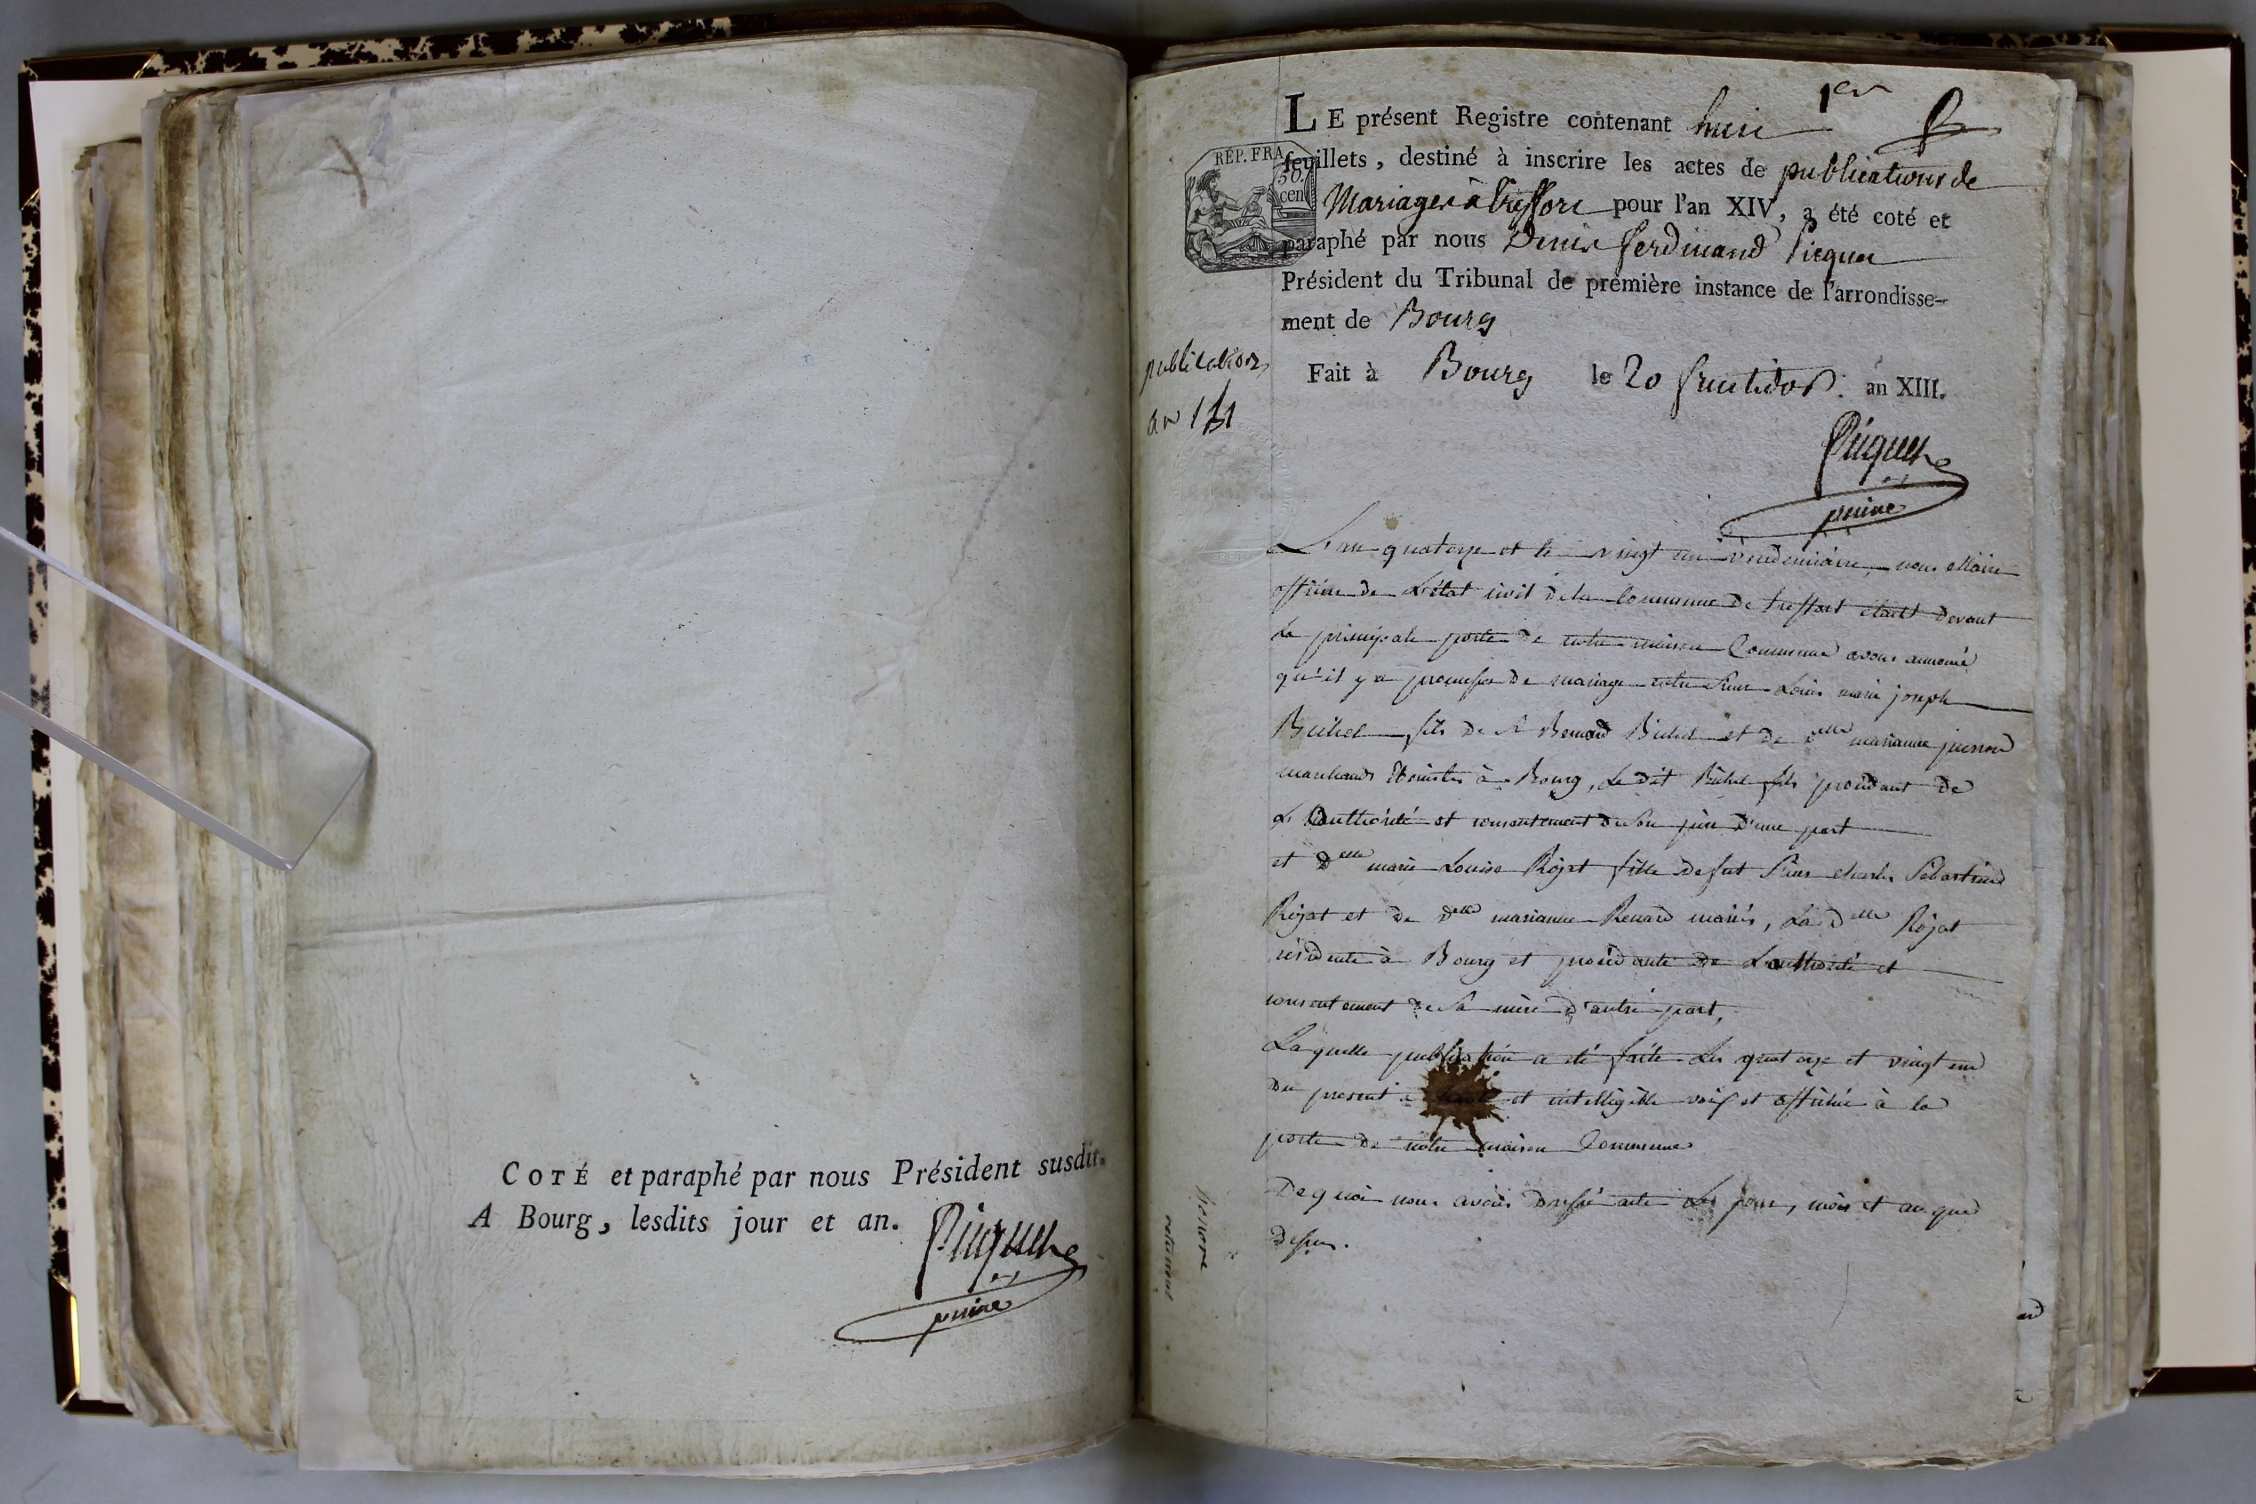 COTÉ et paraphé par nous Président susdit.
A Bourg, lesdits jour et an.
Picquet
1er
LE présent Registre contenant huit
feuillets, destiné à inscrire les actes de publications de
Mariages à treffort pour l'an XIV, a été coté et
paraphé par nous Denis ferdinand Picquet
Président du Tribunal de première instance de l'arrondisse-
ment de Bourg
Fait à Bourg le 20 fructidor. an XIII.
RÉP. FRA
50.
cen
publication
an 14
Picquet
L'an quatorze et le vingt un vendemiaire, nous Maire
officier de L'état civil de la Commune de treffort étant devant
La principale porte de notre maison Commune avons annoncé
qu'il y a promesse de mariage entre Sieur Louis marie joseph
Bichel fils de Sr Bernard Bichel et de delle marianne
marchands à Bourg, Le dit Bichel fils procédant de
L'authorité et consentement de son père d'une part
et Delle marie Louise Rojat fille de fut Sieur charles Sébastien
Rojat et de delle marianne Renard mariés, La delle Rojat
résidente à Bourg et procédante de L'authorité et
consentement de Sa mère d'autre part,
Laquelle publication a été faite Les quatorze et vingt un
du présent à haute et intelligible voix et affichée à la
porte de notre maison Commune
De quoi nous avons dressé acte Les jour, mois et an que
dessus.